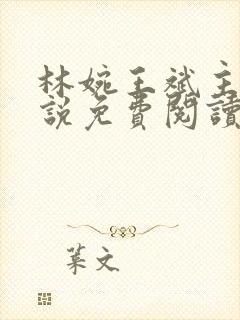 林婉王斌主
説免費閱讀
葉文